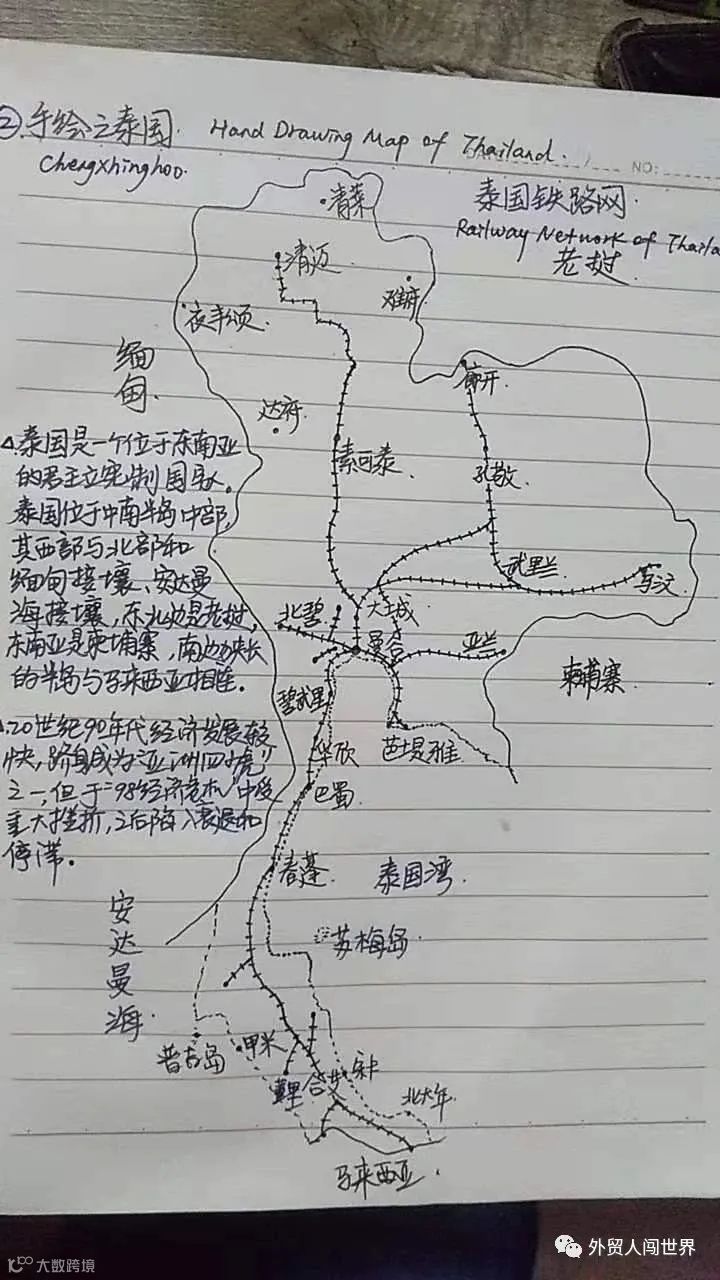 ②手绘之泰国. Hand Drawing Map of Thailand.
NO:
Chengxhinghoo.
泰国铁路网.
Railway Network of Thaila
老挝
青莱
清迈
难府
夜丰颂.
缅甸.
廊开.
达府.
素可泰.
孔敬.
△.泰国是一个位于东南亚
的君主立宪制国家。
泰国位于中南半岛中部,
其西部与北部和
缅甸接壤、安达曼
海接壤,东北边是老挝,
东南亚是柬埔寨,南边狭长
的半岛与马来西亚相连.
武里兰.
乌汶
北碧
大城
曼谷
亚兰
柬埔寨.
碧武里
芭堤雅.
华欣
巴蜀
△.20世纪90年代经济发展较
快,跻身成为“亚洲四小虎”
之一,但于“98经济危机”中受
重大挫折,之后陷入衰退和
停滞。
春蓬.
泰国湾.
安达曼海.
苏梅岛.
普吉岛
甲米
合艾
北大年.
马来西亚.
外贸人闯世界
大数跨境